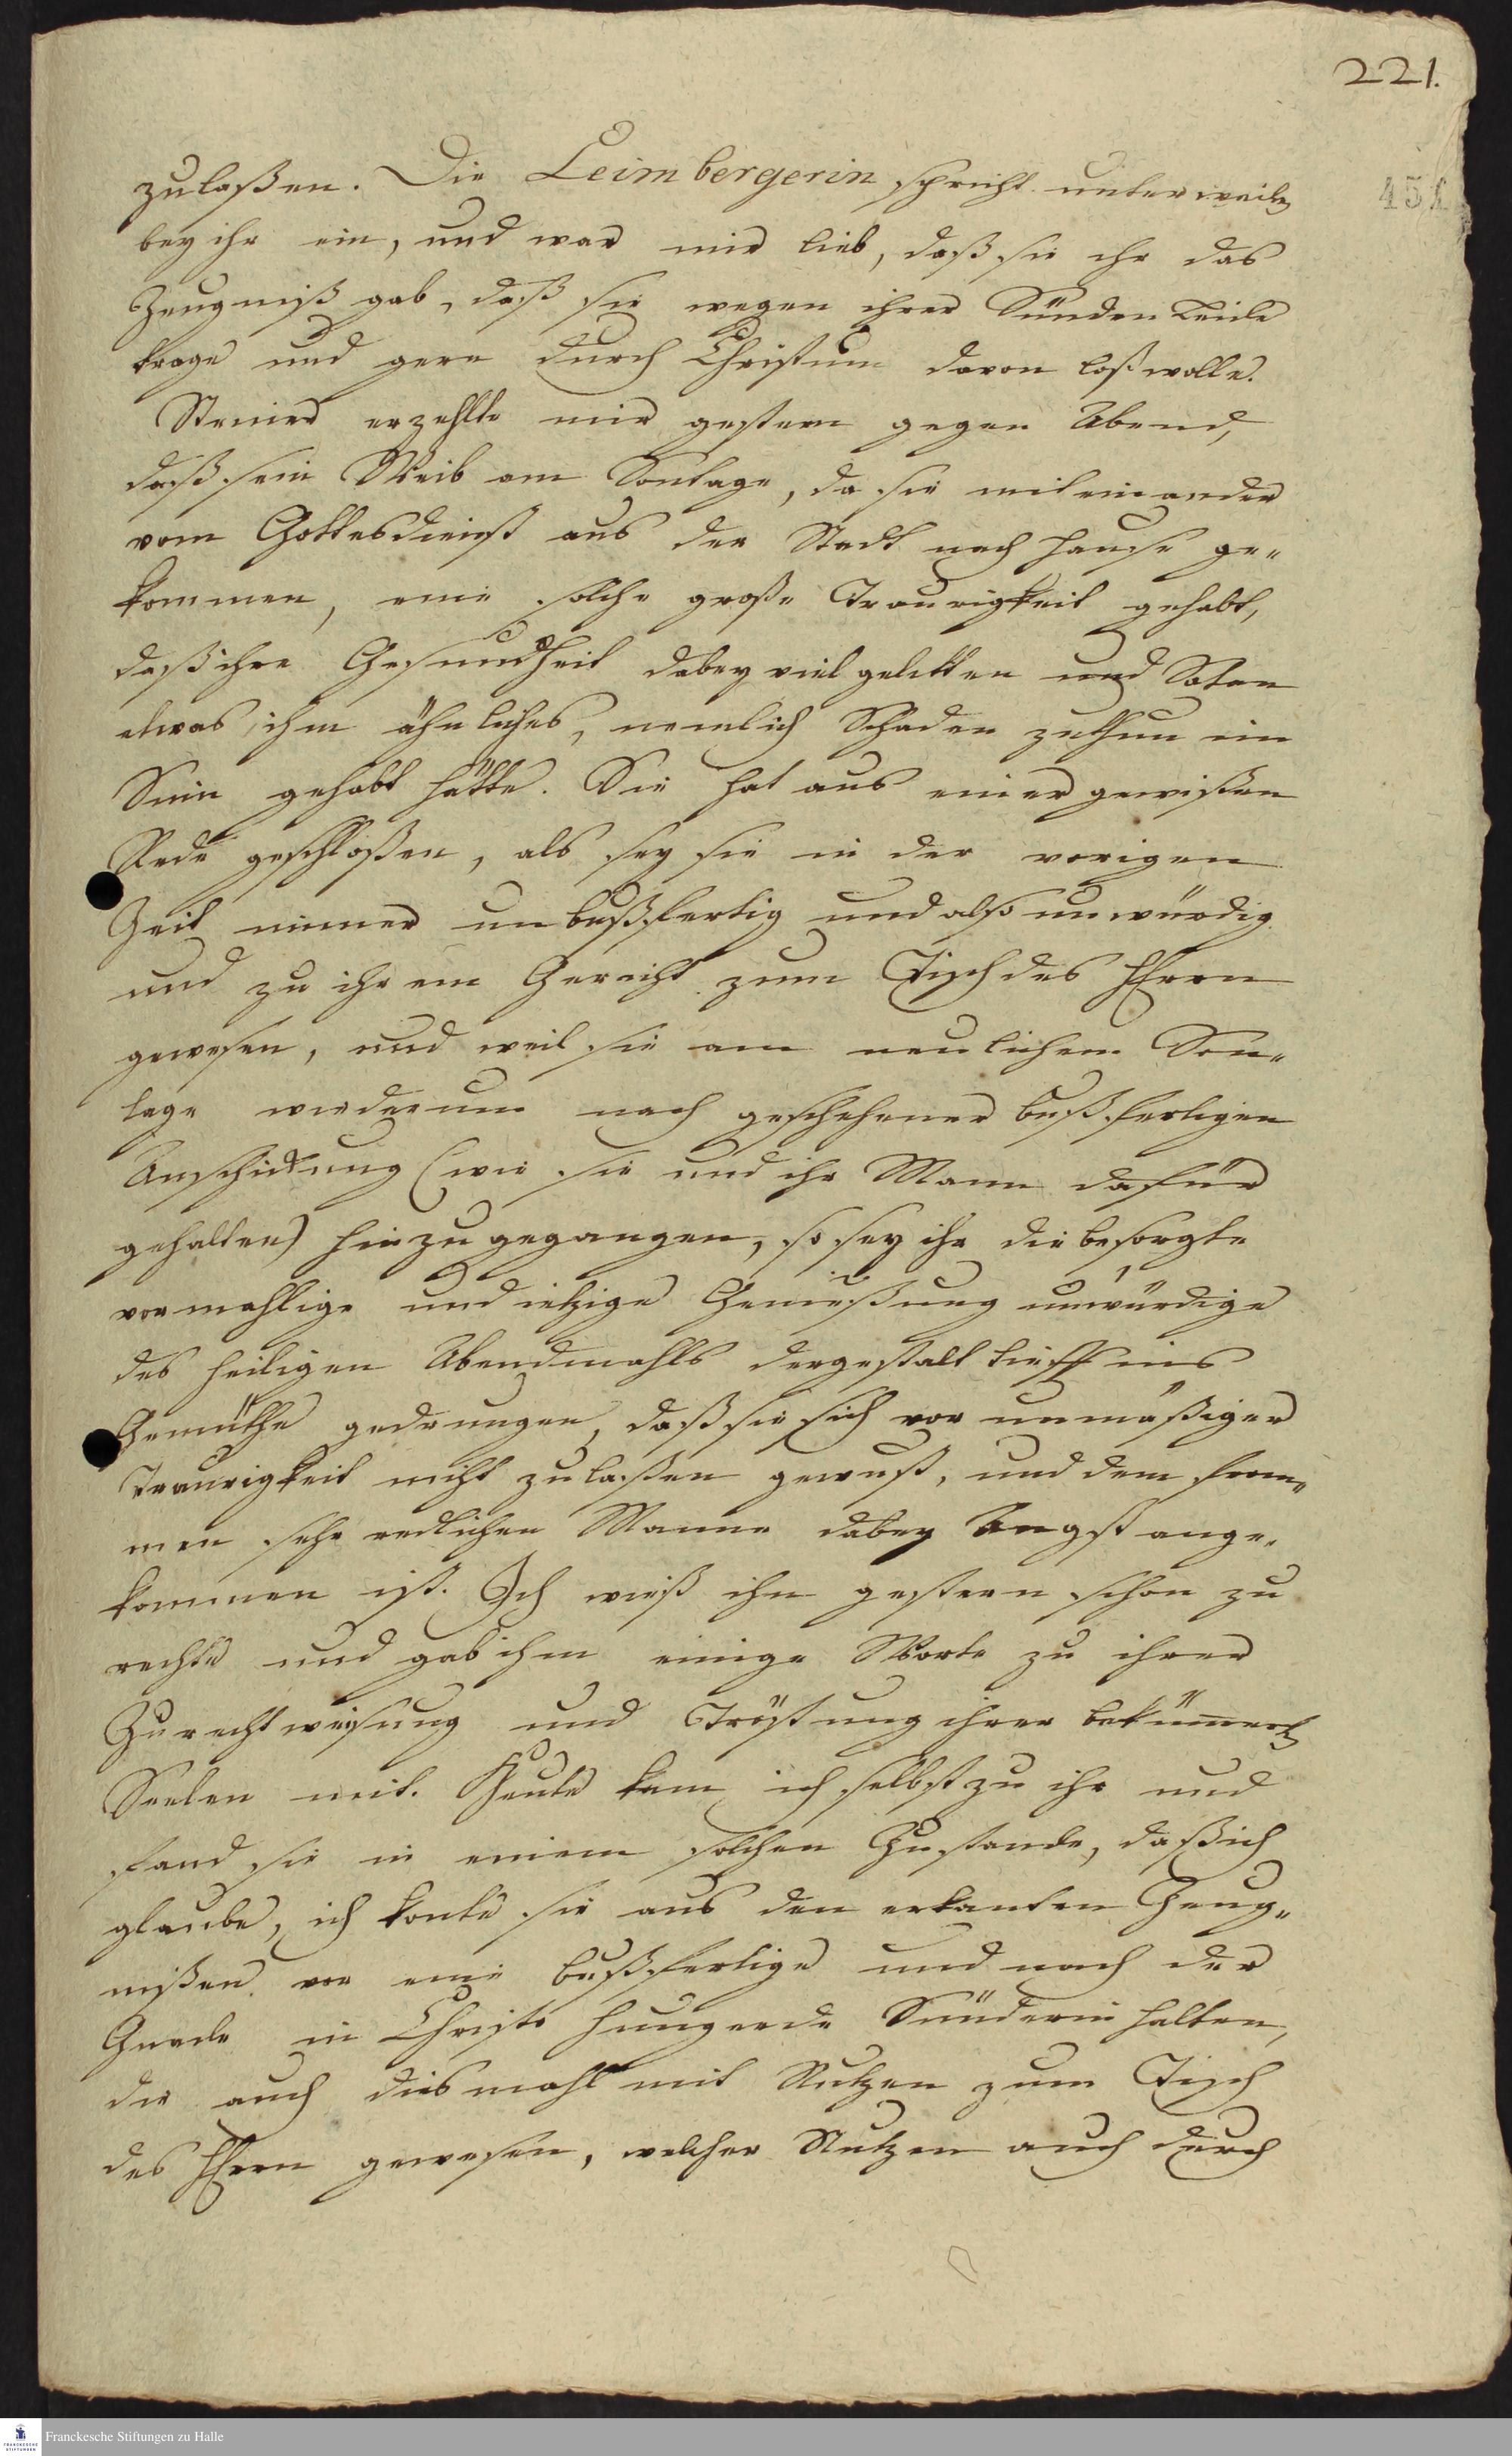 221.
451
zulaßen. Die Leimbergerin spricht unterweilen
bey ihr ein, und war mir lieb, daß sie ihr das
Zeugniß gab, daß sie wegen ihrer Sünden Leide
trage und gern durch Christum davon loß wolle.
Steiner erzehlte mir gestern gegen Abend,
daß sein Weib am Sontage, da sie mit einander
vom Gottesdienst aus der Stadt nach Hause ge-
kommen, eine solche große Traurigkeit gehabt,
daß ihre Gesundheit dabey viel gelitten und Satan
etwas ihm ähnliches, nemlich Schaden zuthun im
Sinn gehabt hätte. Sie hat aus einer gewißen
Rede geschloßen, als sey sie in der vorigen
Zeit immer unbußfertig und also unwürdig
und zu ihrem Gericht zum Tisch des HErrn
gewesen, und weil sie am neulichem Son-
tage wiederum nach geschehener bußfertigen
Anschickung (wie sie und ihr Mann dafür
gehalten) hinzu gegangen, so sey ihr die besorgte
vormahlige und ietzige Genießung unwürdige
des heiligen Abendmahls dergestalt tieff ins
Gemüthe gedrungen, daß sie sich vor unmäßiger
Traurigkeit nicht zulaßen gewust, und dem from-
men sehr redlichen Manne dabey Angst ange-
kommen ist. Ich wieß ihn gestern schon zu
rechte und gab ihm einige Worte zu ihrer
Zurechtweisung und Tröstung ihrer bekümerten
Seelen mit. Heute kam ich selbst zu ihr und
fand sie in einem solchen Zustande, daß ich
glaube, ich konte sie aus den erkanten Zeug-
nißen vor eine bußfertige und nach der
Gnade in Christo hungerde Sünderin halten,
die auch diesmahl mit Nutzen zum Tisch
des HErrn gewesen, welcher Nutzen auch durch
Franckesche Stiftungen zu Halle